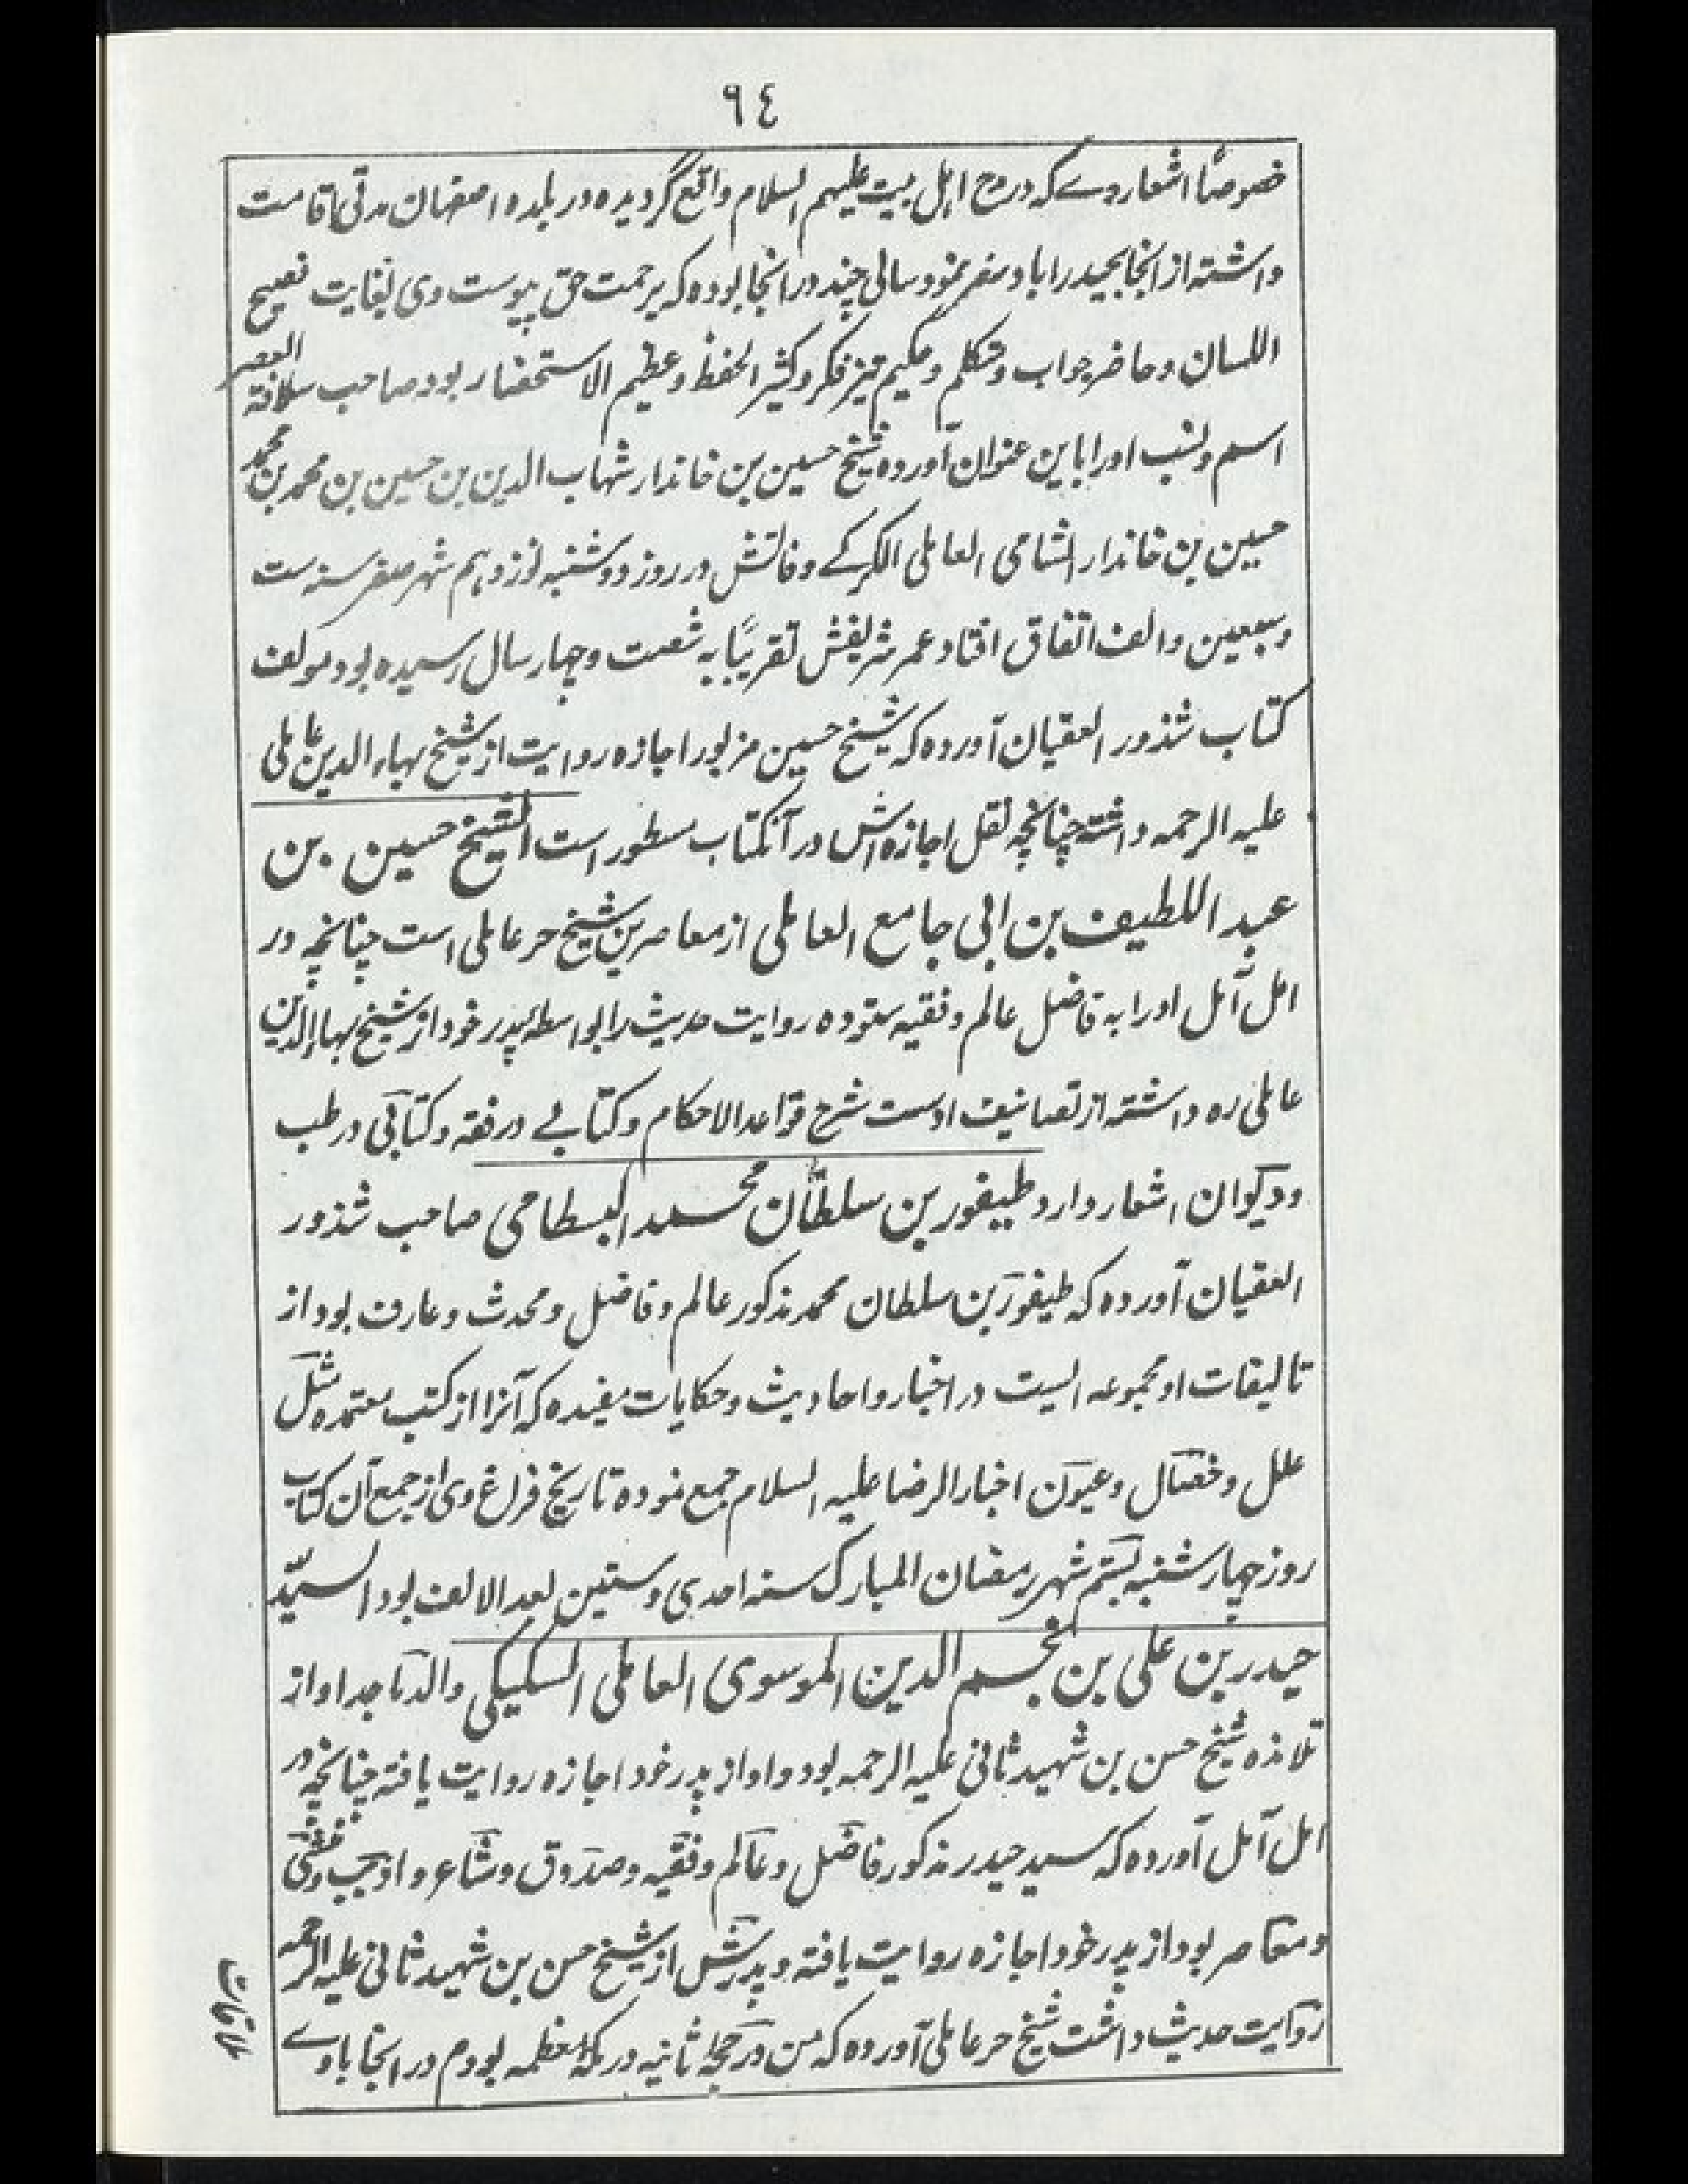 ٩٤
خصوصًا اشعار وے که در مدح اہل بیت علیہم السلام واقع گردیده و در بلده اصفهان مدتی اقامت
داشته از انجا بحیدراباد سفر نمود و سالی چند در انجا بوده که برحمت حق پیوست وی بغایت فصیح
اللسان و حاضر جواب و متکلم و حکیم تیز فکر و کثیر الحفظ و عظیم الاستحضار بود صاحب سلافة العصر
اسم و نسب او را باین عنوان آورده شیخ حسین بن خاندار شهاب الدین بن حسین بن محمد بن محمد
حسین بن خاندار الشامی العاملی الکرکے وفاتش در روز دوشنبه نوزدہم شهر صفر سنه ست
وسبعین والف اتفاق افتاد عمر شریفش تقریبًا به شصت و چهار سال رسیده بود مولف
کتاب شذور العقیان آورده که شیخ حسین مزبور اجازه روایت از شیخ بهاء الدین عاملی
علیه الرحمه داشته چنانچه نقل اجازه اش در آنکتاب مسطور است الشیخ حسین بن
عبد اللطیف بن ابی جامع العاملی از معاصرین شیخ حر عاملی است چنانچه در
امل آمل او را به فاضل عالم و فقیه ستوده روایت حدیث را بواسطه پدر خود از شیخ بهاء الدین
عاملی ره داشته از تصانیف اوست شرح قواعد الاحکام و کتابے در فقه و کتابی در طب
و دیوان اشعار دارد طیفور بن سلطان محمد البسطامی صاحب شذور
العقیان آورده که طیفور بن سلطان محمد مذکور عالم و فاضل و محدث و عارف بود از
تالیفات او مجموعه ایست در اخبار و احادیث و حکایات مفیده که آنرا از کتب معتمده مثل
علل و خصال و عیون اخبار الرضا علیه السلام جمع نموده تاریخ فراغ وی از جمع آن کتاب
روز چهارشنبه بستم شهر رمضان المبارک سنه احدی و ستین بعد الالف بود السیّد
حیدر بن علی بن نجم الدین الموسوی العاملی السکیکی والد ماجد او از
تلامذه شیخ حسن بن شهید ثانی علیه الرحمه بود و او از پدر خود اجازه روایت یافته چنانچه در
امل آمل آورده که سید حیدر مذکور فاضل و عالم و فقیه و صدوق و شاعر و ادیب و منشی
و معاصر بود از پدر خود اجازه روایت یافته و پدرش از شیخ حسن بن شهید ثانی علیه الرحمه
روایت حدیث داشت شیخ حر عاملی آورده که من در حجة ثانیه در مکه معظمه بودم در انجا باوے
ملاقات